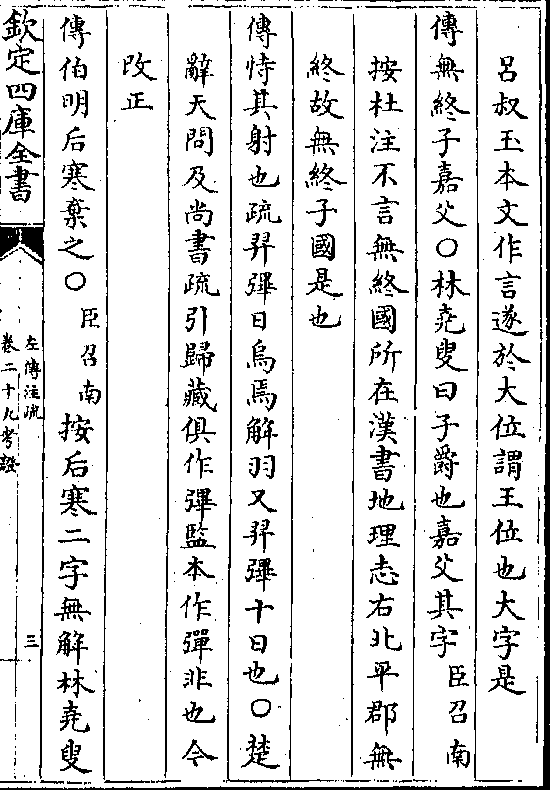 呂叔玉本文作言遂於大位謂王位也大字是
傳無終子嘉父〇林堯叟曰子爵也嘉父其字臣召南
按杜注不言無終國所在漢書地理志右北平郡無
終故無終子國是也
傳恃其射也疏羿彃日烏焉解羽又羿彃十日也〇楚
辭天問及尚書疏引歸藏俱作彃監本作彈非也今
改正
傳伯明后寒棄之〇臣召南按后寒二字無解林堯叟
欽定四庫全書
左傳注疏
卷二十九考證
三